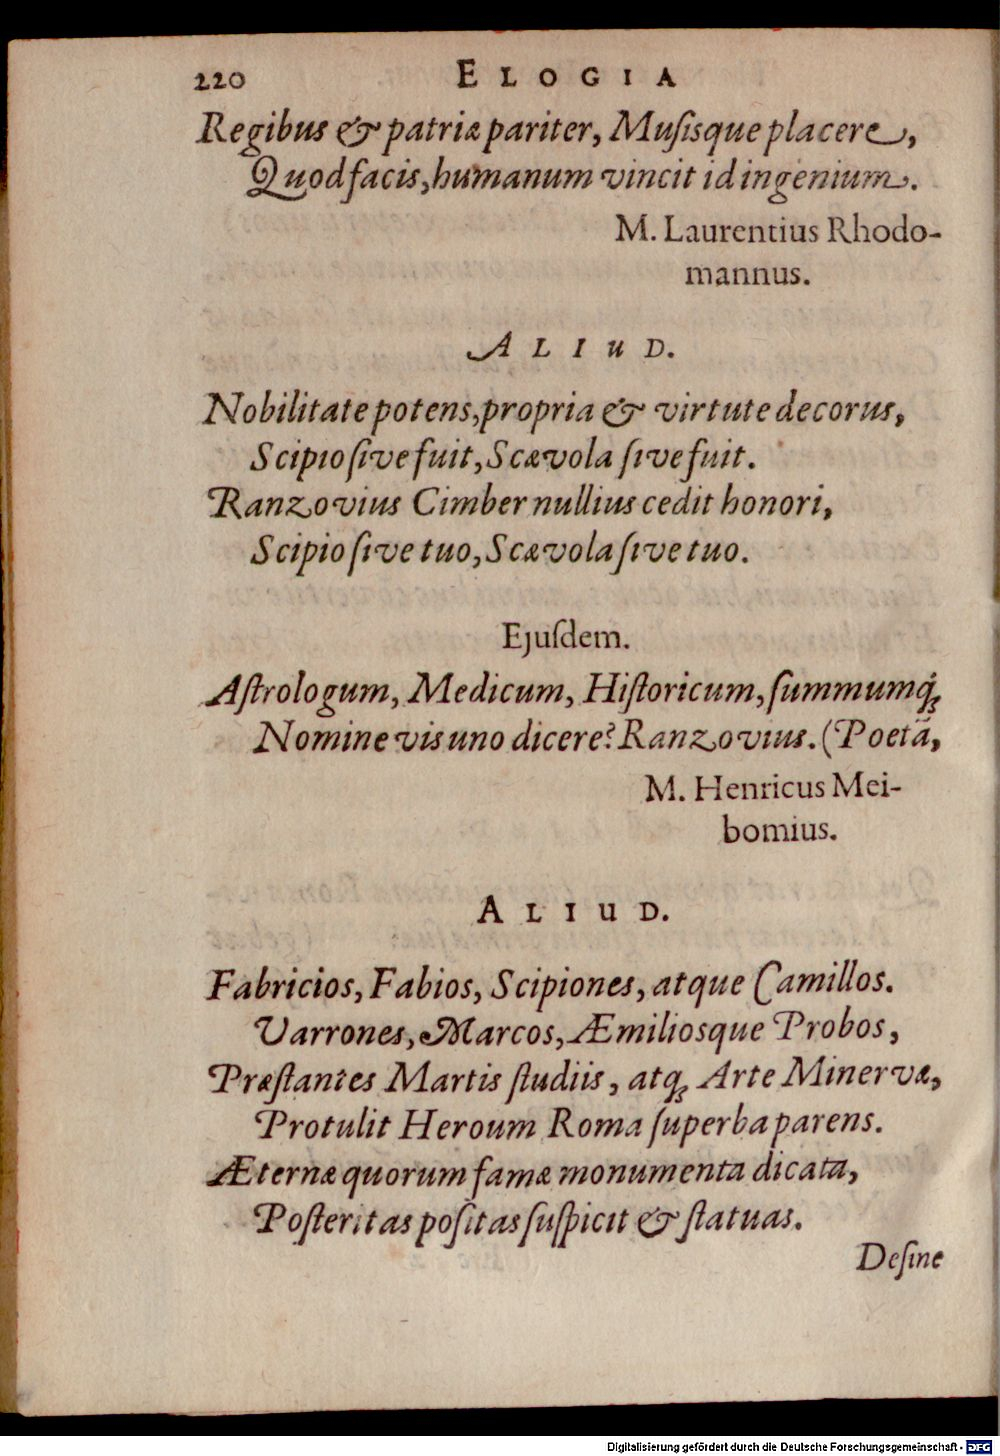 220 ELOGIA
Regibus & patriæ pariter, Muſisque placere,
Quod facis, humanum vincit id ingenium.
M. Laurentius Rhodo-
mannus.
ALIUD.
Nobilitate potens, propria & virtute decorus,
Scipio ſive fuit, Scævola ſive fuit.
Ranzovius Cimber nullius cedit honori,
Scipio ſive tuo, Scævola ſive tuo.
Ejuſdem.
Aſtrologum, Medicum, Hiſtoricum, ſummumq́;
Nomine vis uno dicere? Ranzovius. (Poetã,
M. Henricus Mei-
bomius.
ALIUD.
Fabricios, Fabios, Scipiones, atque Camillos.
Varrones, Marcos, Æmiliosque Probos,
Præſtantes Martis ſtudiis, atq; Arte Minervæ,
Protulit Heroum Roma ſuperba parens.
Æternæ quorum famæ monumenta dicata,
Poſteritas poſitas ſuſpicit & ſtatuas.
Deſine
Digitalisierung gefördert durch die Deutsche Forschungsgemeinschaft - DFG